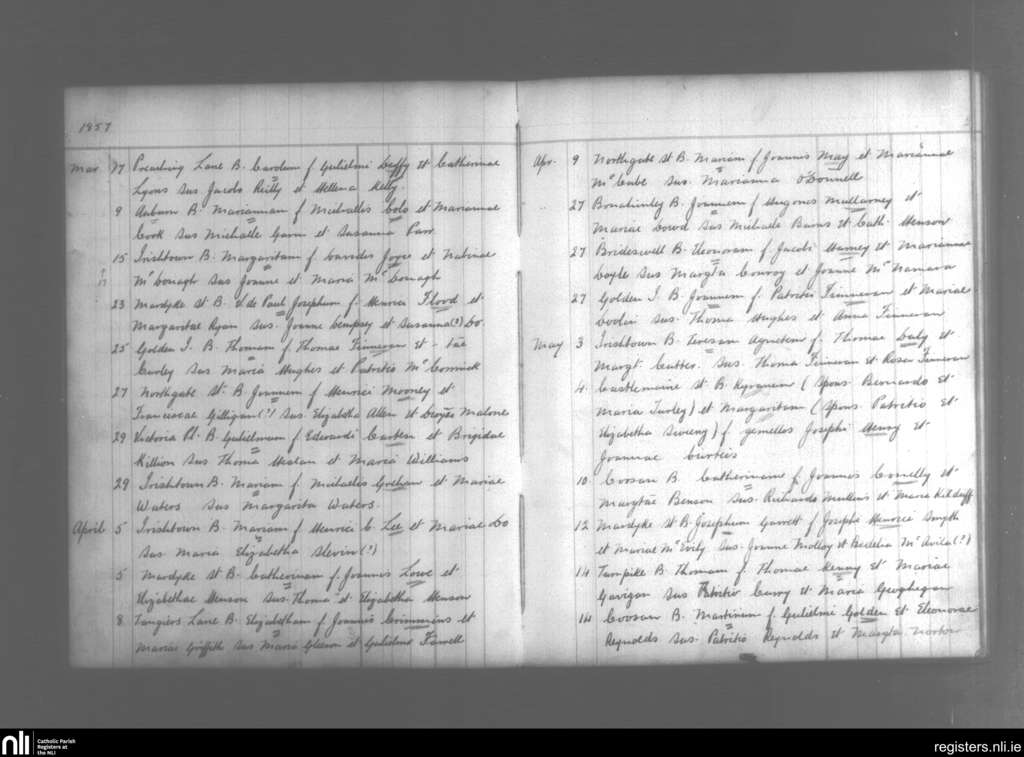 1857
Mar 17 Preaching Lane B. Carolum f Gulielmi Duffy et Catherinae
Lyons sus Jacobo Reilly et Hellena Kelly
9 Auburn B. Mariannam f Michaelis Cole et Mariannae
Cook sus Michaelle Gavin et Susanna Parr
15 Irishtown B. Margaritam f Joyce et
Mc Donagh sus Joanne et Maria Mc Donagh
23 Mardyke St B. V. de Paul Josephum f. Henrici Flood et
Margaritae Ryan sus. Joanne Dempsey et Susanna(?) Do.
25 Golden I. B. Thomam f Thomae Finneran et
Curley sus Maria Hughes et Patritio Mc Cormick
27 Northgate St B Joannem f Henrici Mooney et
Franciscae Gilligan(?) sus. Elizabetha Allen et Malone
29 Victoria Pl. B. Gulielmum f Edwardi Carten et Brigidae
Killion sus Thoma et Maria Williams
29 Irishtown B. Mariam f. Michaelis Graham et Mariae
Waters sus Margarita Waters
April 5 Irishtown B. Mariam f Henrici C. Lee et Mariae Do
sus Maria Elizabetha Slevin(?)
5 Mardyke St B. Catherinam f. Joannis Lowe et
Elizabethae Henson sus. Thoma et Elizabetha Henson
8 Tangiers Lane B. Elizabetham f Joannis Crimmins et
Mariae Griffith sus Maria Gleeson et Gulielmo Farrell
Apr. 9 Northgate St B. Mariam f Joannis May et Mariannae
Mc Cabe sus. Marianna O'Donnell
27 B. Joannem f Hugonis Mullarney et
Mariae Dowd sus Michaele Burns et Cath. Henson
27 Brideswell B. Eleonoram f Jacobi Harney et Mariannae
Coyle sus Margta Conroy et Joanne Mc Namara
27 Golden I. B. Joannem f. Patritii Finneran et Mariae
sus. Thoma Hughes et Anna Finneran
May 3 Irishtown B. Teresam Agnetem f Thomae Daly et
Margt. sus. Thoma Finneran et Rosa Finneran
4. Castlemaine St B. Kyranum (spons. Bernardo et
Maria Turley) et Margaritam (spons. Patritio et
Elizabetha Sweeny) f gemellos Josephi Henry et
Joannae
10 Coosan B. Catherinam f Joannis Connelly et
Margtae Benson sus. Richardo Mullins et Maria Kilduff
12 Mardyke St B. Josephum Garrett f Josephi Henrici Smyth
et Mariae Mc Evily sus. Joanne Molloy et Bedelia Mc Avila(?)
14 Turnpike B. Thomam f. Thomae Kenny et Mariae
Gavigan sus Patritio Curry et Maria Geoghegan
14 Coosan B. Martinum f Gulielmi Golden et Eleonorae
Reynolds sus. Patritio Reynolds et Margta. Norton
nli
Catholic Parish
Registers at
the NLI
registers.nli.ie